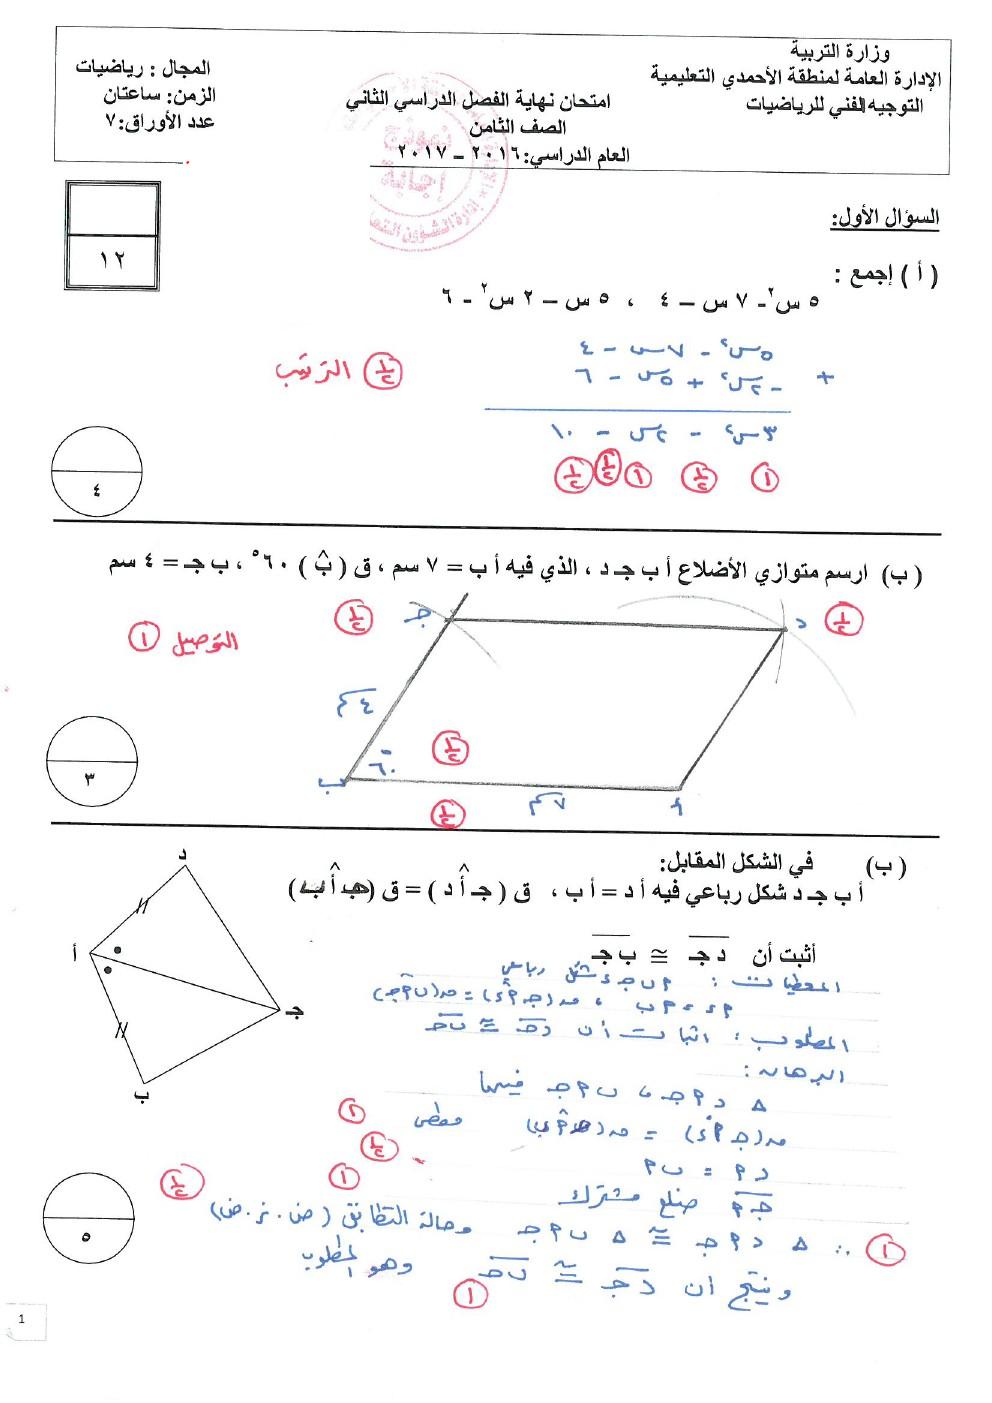 وزارة التربية
الإدارة العامة لمنطقة الأحمدي التعليمية
التوجيه الفني للرياضيات
امتحان نهاية الفصل الدراسي الثاني
الصف الثامن
العام الدراسي: ٢٠١٦ – ٢٠١٧
المجال : رياضيات
الزمن: ساعتان
عدد الأوراق: ٧
نموذج
إجابة
السؤال الأول:
١٢
( أ ) إجمع :
٥ س٢ - ٧ س – ٤ ، ٥ س – ٢ س٢ - ٦
٥س٢ - ٧س - ٤
+ -٢س٢ + ٥س - ٦
٣س٢ - ٢س - ١٠
١/٢ الترتيب
١ ١/٢ ١ ١/٢ ١/٢
٤
(ب) ارسم متوازي الأضلاع أ ب جـ د ، الذي فيه أ ب = ٧ سم ، ق ( بَ ) ٦٠° ، ب جـ = ٤ سم
١/٢ د جـ ١/٢
التوصيل ١
٤سم
١/٢
٦٠°
ب ٧سم أ
١/٢
٣
(ب) في الشكل المقابل:
أ ب جـ د شكل رباعي فيه أ د = أ ب ، ق ( جـ أ د ) = ق ( جـ أ ب )
أثبت أن د جـ ≅ ب جـ
د
أ
جـ
ب
المعطيات : أ ب جـ د شكل رباعي
أ د = أ ب ، ق(جـ أ د) = ق(ب أ جـ)
المطلوب : اثبات أن د جـ ≅ ب جـ
البرهان :
Δ د أ جـ ، ب أ جـ فيهما
ق(جـ أ د) = ق(جـ أ ب) معطى ٢
د أ = ب أ ١/٢
جـ أ ضلع مشترك ١
١ ∴ Δ د أ جـ ≅ Δ ب أ جـ وحالة التطابق (ض . ز . ض) ١/٢
وينتج ان د جـ ≅ ب جـ وهو المطلوب
١
٥
1